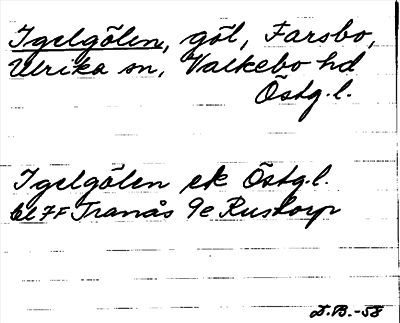 Igelgölen, göl, Farsbo,
Ulrika sn, Valkebo hd
Östg.l.
Igelgölen ek Östg.l.
bl 7F Tranås 9e Rustorp
D.B.-58